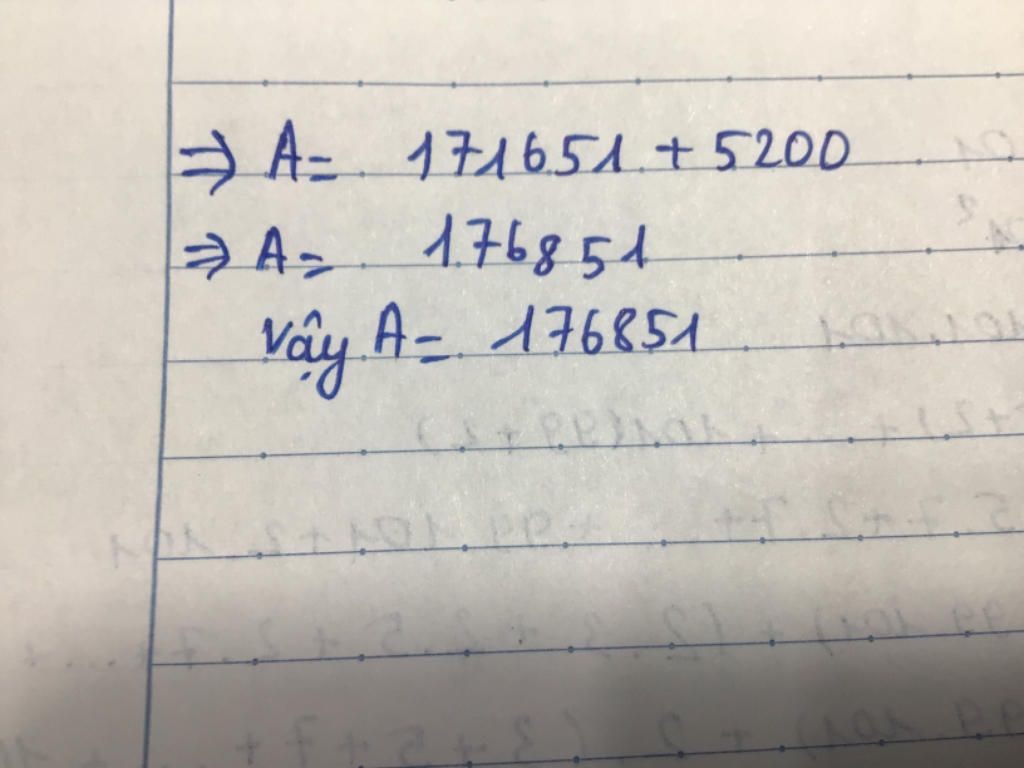 ⇒ A = 171651 + 5200
⇒ A = 176851
Vậy A = 176851